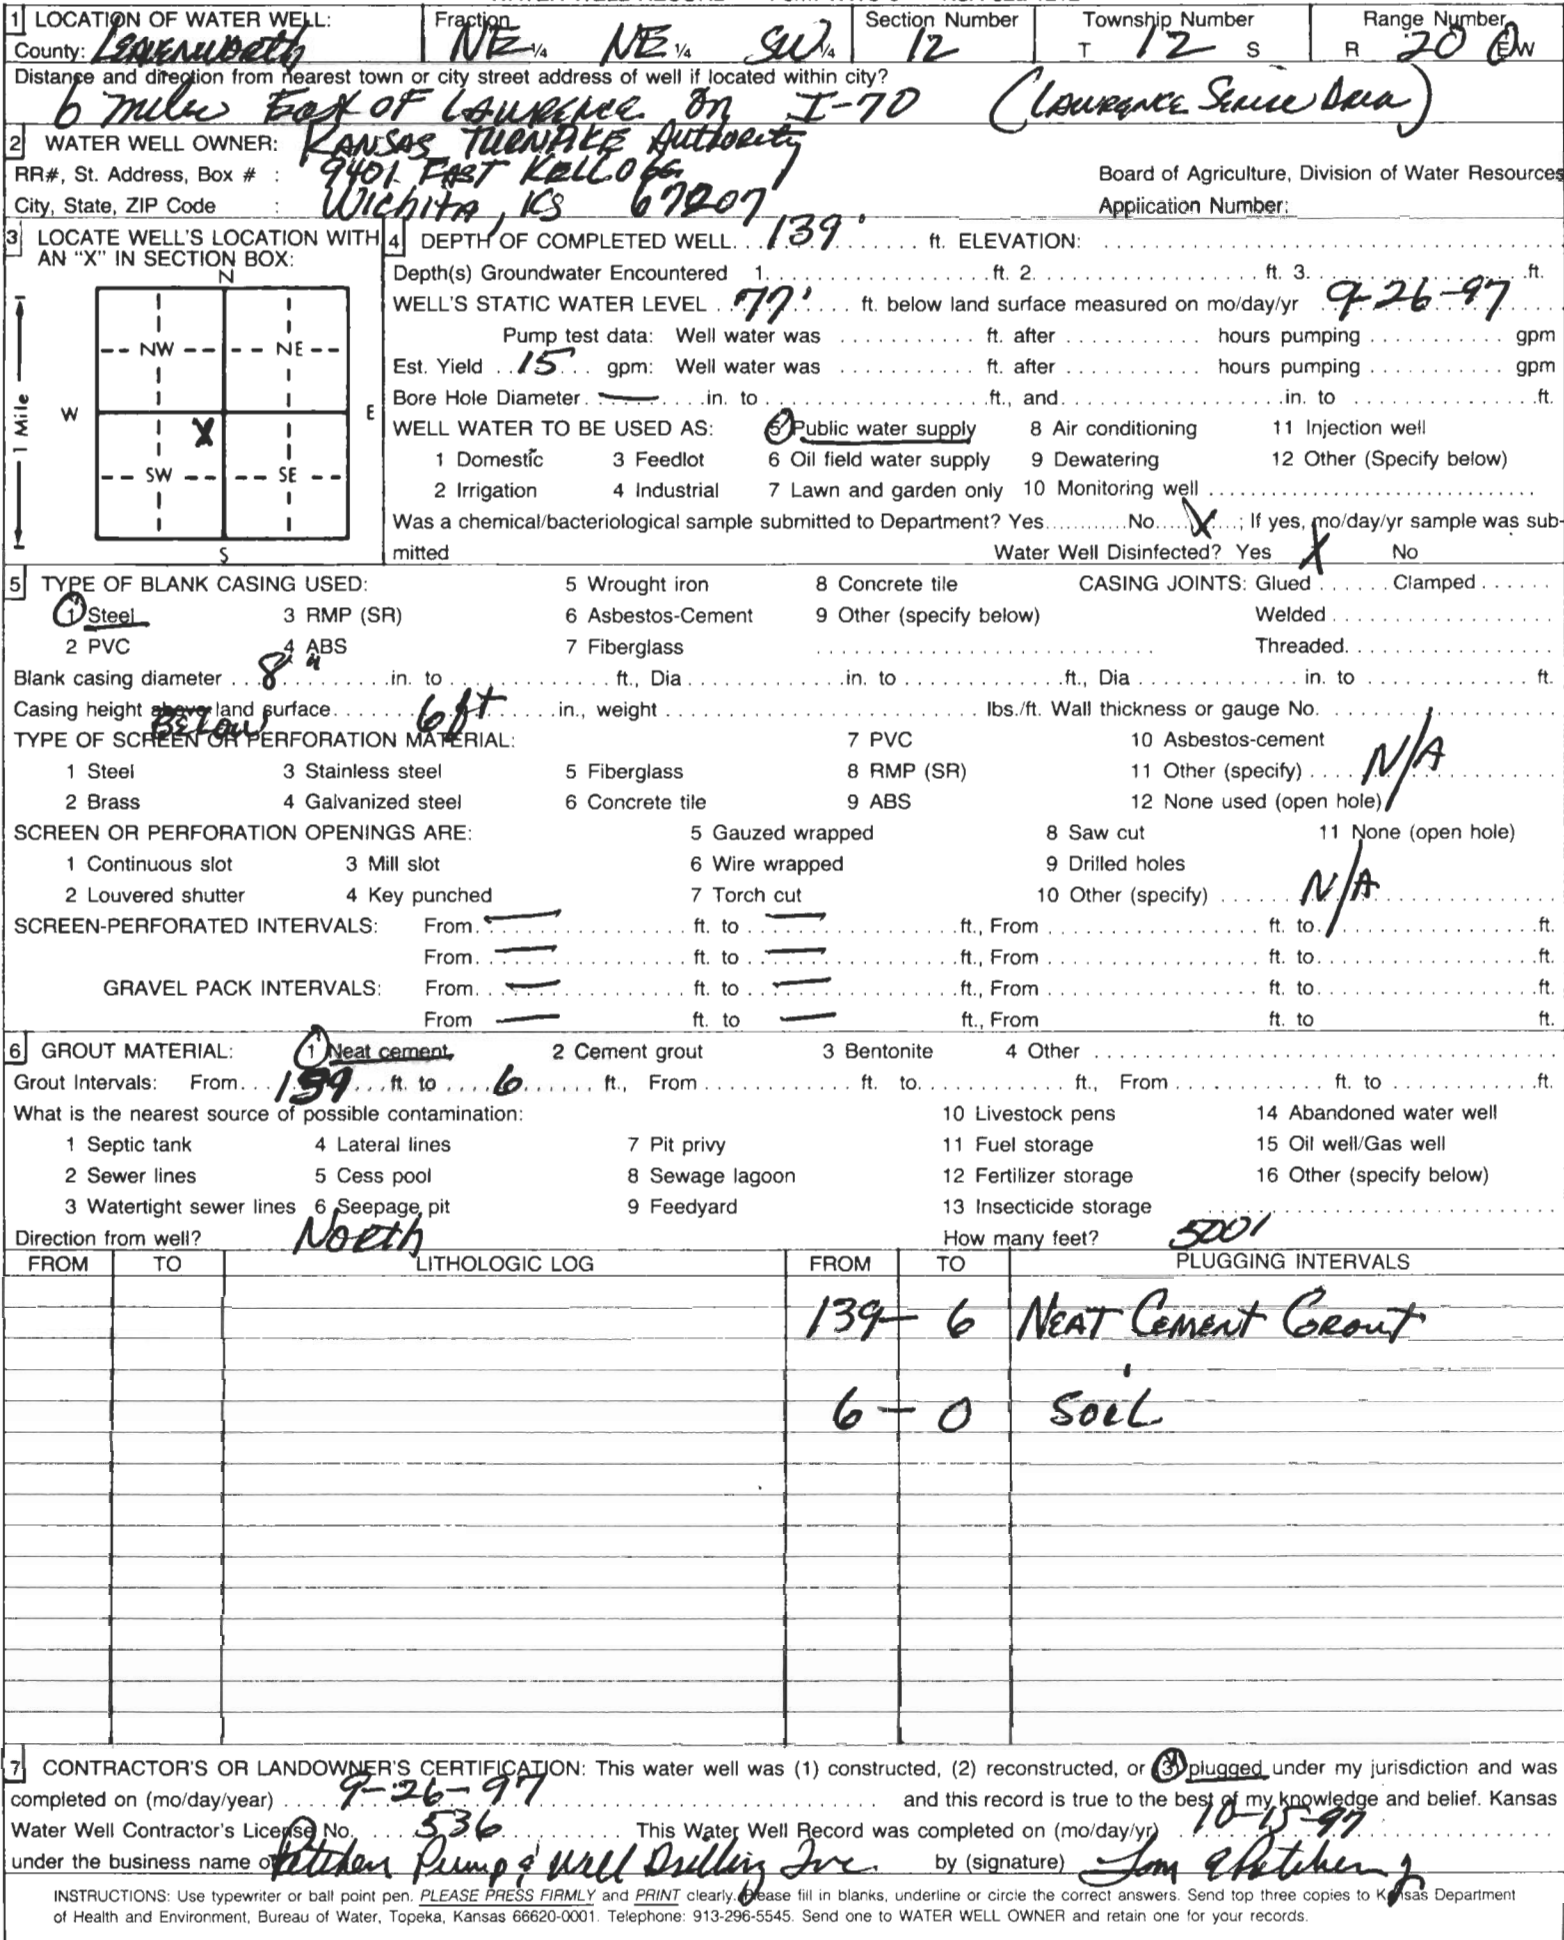 1 LOCATION OF WATER WELL: Fraction Section Number Township Number Range Number
County: Leavenworth NE ¼ NE ¼ SW ¼ 12 T 12 S R 20 E/W
Distance and direction from nearest town or city street address of well if located within city?
6 miles East of Lawrence on I-70 (Lawrence Service Area)
2 WATER WELL OWNER: Kansas Turnpike Authority
RR#, St. Address, Box # : 9401 East Kellogg Board of Agriculture, Division of Water Resources
City, State, ZIP Code : Wichita, KS 67207 Application Number:
3 LOCATE WELL'S LOCATION WITH AN "X" IN SECTION BOX:
N
NW NE
W X E
SW SE
S
1 Mile
4 DEPTH OF COMPLETED WELL 139' ft. ELEVATION:
Depth(s) Groundwater Encountered 1. ft. 2. ft. 3. ft.
WELL'S STATIC WATER LEVEL 77' ft. below land surface measured on mo/day/yr 9-26-97
Pump test data: Well water was ft. after hours pumping gpm
Est. Yield 15 gpm: Well water was ft. after hours pumping gpm
Bore Hole Diameter — in. to ft., and in. to ft.
WELL WATER TO BE USED AS: 5 Public water supply 8 Air conditioning 11 Injection well
1 Domestic 3 Feedlot 6 Oil field water supply 9 Dewatering 12 Other (Specify below)
2 Irrigation 4 Industrial 7 Lawn and garden only 10 Monitoring well
Was a chemical/bacteriological sample submitted to Department? Yes No X ; If yes, mo/day/yr sample was sub-
mitted Water Well Disinfected? Yes X No
5 TYPE OF BLANK CASING USED: 5 Wrought iron 8 Concrete tile CASING JOINTS: Glued Clamped
1 Steel 3 RMP (SR) 6 Asbestos-Cement 9 Other (specify below) Welded
2 PVC 4 ABS 7 Fiberglass Threaded.
Blank casing diameter 8" in. to ft., Dia in. to ft., Dia in. to ft.
Casing height above Below land surface 6 ft in., weight lbs./ft. Wall thickness or gauge No.
TYPE OF SCREEN OR PERFORATION MATERIAL: 7 PVC 10 Asbestos-cement
1 Steel 3 Stainless steel 5 Fiberglass 8 RMP (SR) 11 Other (specify) N/A
2 Brass 4 Galvanized steel 6 Concrete tile 9 ABS 12 None used (open hole)
SCREEN OR PERFORATION OPENINGS ARE: 5 Gauzed wrapped 8 Saw cut 11 None (open hole)
1 Continuous slot 3 Mill slot 6 Wire wrapped 9 Drilled holes
2 Louvered shutter 4 Key punched 7 Torch cut 10 Other (specify) N/A
SCREEN-PERFORATED INTERVALS: From — ft. to — ft., From ft. to ft.
From — ft. to — ft., From ft. to ft.
GRAVEL PACK INTERVALS: From — ft. to — ft., From ft. to ft.
From — ft. to — ft., From ft. to ft.
6 GROUT MATERIAL: 1 Neat cement 2 Cement grout 3 Bentonite 4 Other
Grout Intervals: From 139 ft. to 6 ft., From ft. to ft., From ft. to ft.
What is the nearest source of possible contamination: 10 Livestock pens 14 Abandoned water well
1 Septic tank 4 Lateral lines 7 Pit privy 11 Fuel storage 15 Oil well/Gas well
2 Sewer lines 5 Cess pool 8 Sewage lagoon 12 Fertilizer storage 16 Other (specify below)
3 Watertight sewer lines 6 Seepage pit 9 Feedyard 13 Insecticide storage
Direction from well? North How many feet? 500'
FROM TO LITHOLOGIC LOG FROM TO PLUGGING INTERVALS
139 – 6 Neat Cement Grout
6 – 0 Soil
7 CONTRACTOR'S OR LANDOWNER'S CERTIFICATION: This water well was (1) constructed, (2) reconstructed, or (3) plugged under my jurisdiction and was
completed on (mo/day/year) 9-26-97 and this record is true to the best of my knowledge and belief. Kansas
Water Well Contractor's License No. 536 This Water Well Record was completed on (mo/day/yr) 10-15-97
under the business name of Pump & Well Drilling Inc. by (signature) Tom
INSTRUCTIONS: Use typewriter or ball point pen. PLEASE PRESS FIRMLY and PRINT clearly. Please fill in blanks, underline or circle the correct answers. Send top three copies to Kansas Department
of Health and Environment, Bureau of Water, Topeka, Kansas 66620-0001. Telephone: 913-296-5545. Send one to WATER WELL OWNER and retain one for your records.